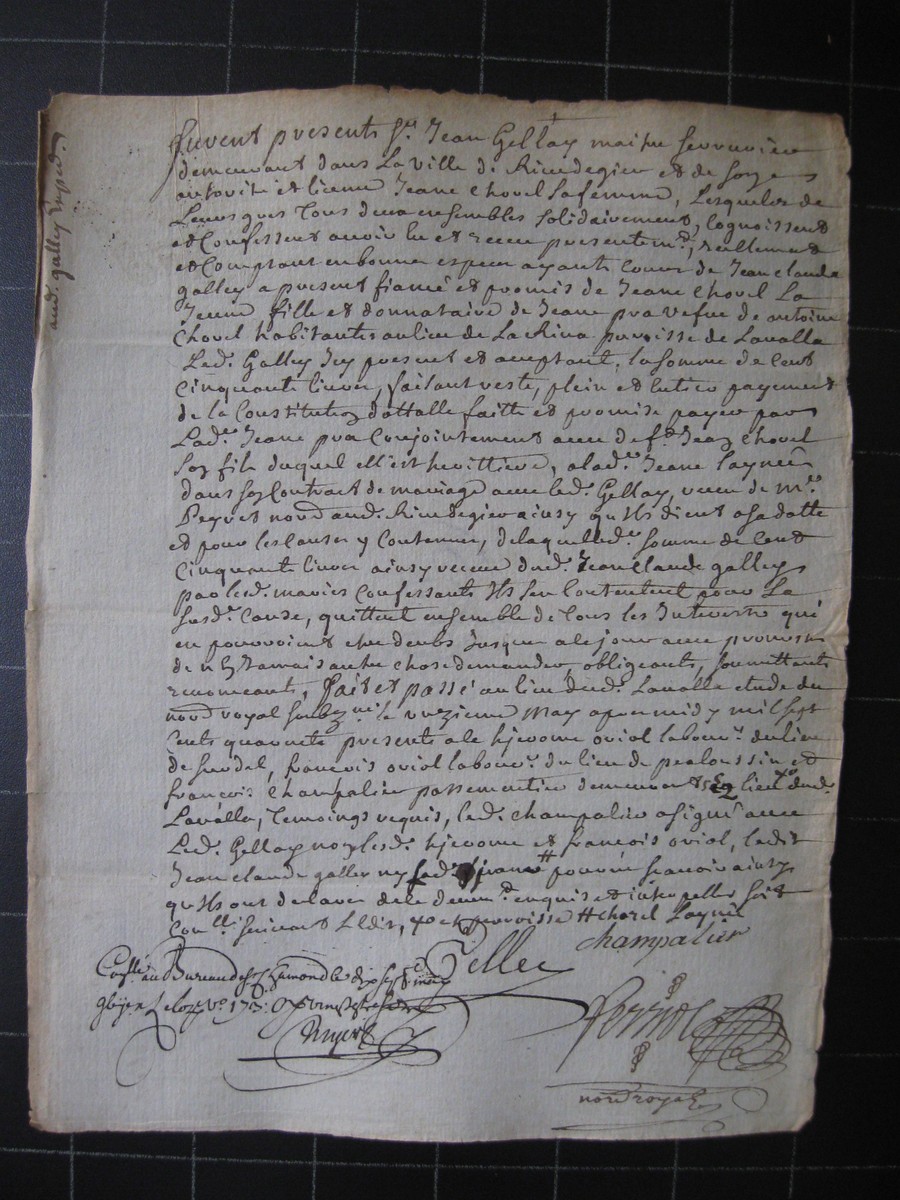 aud. galley Exped.
furent presents Sr. Jean Gellay maitre serrurier
demeurant dans La ville de Rivedegier et de soy
autorite et licence Jeane Chovel sa femme, Lesquels de
Leurs gres tous deux ensembles solidairement, Cognoissent
et Confessent avoir eu et receu presentemt, reellement
et Comptant en bonnes especes ayants Cours de Jean claude
galley a present fiancé et promis de Jeane Chovel La
Jeune fille et donnataire de Jeane pra vefve de antoine
Chovel habitants au lieu de La Riva parroisse de Lavalla
Led. Galley Icy present et acceptant, la somme de Cent
Cinquante livres, faisant reste, plein et entier payement
de la Constitution dottalle faitte et promise payer par
Lad. Jeane pra Conjointement avec def. Jean Chovel
son fils duquel ell'est herittiere, a lad. Jeane Laynée
dans son Contract de mariage avec led. Gellay, receu de Me.
Peyret nore aud. Rivedegier ainsy qu'ils dient a sa dotte
et pour les Causes y Contenues, de laquelled. somme de Cent
Cinquante livres ainsy receue dud. Jean Claude galley
par lesd. mariés Confessants Ils s'en Contentent pour La
susd. Cause, quittent ensemble de tous les Interests qui
en pourroient etre deubs Jusques a ce jour avec promesse
de n'en Jamais autre chose demander, obligeants, soumettants
renonceants, fait et passé au lieu dud. Lavalla etude du
nore royal soubzne. le unzieme May apres midy mil sept
Cents quarante presents a ce hjerome oriol labour. du lieu
de francois oriol labour. du lieu de pealoussin et
francois Champalier passementier demeurant au lieu dud.
Lavalla, temoings requis, led. champalier a signé avec
Led. Gellay non lesd. hjerome et francois oriol, ledit
Jean claude galley ny lad. Jeane # pour ne scavoir ainsy
qu'ils ont declaré de ce deuemt. enquis et interpellés soit
Conllé. suivant L'Edit, et parroisse # chovel Laynée
champalier
Gellec
Conllé. au Bureau de St. Chamond le dix sept may
1740
nore royal